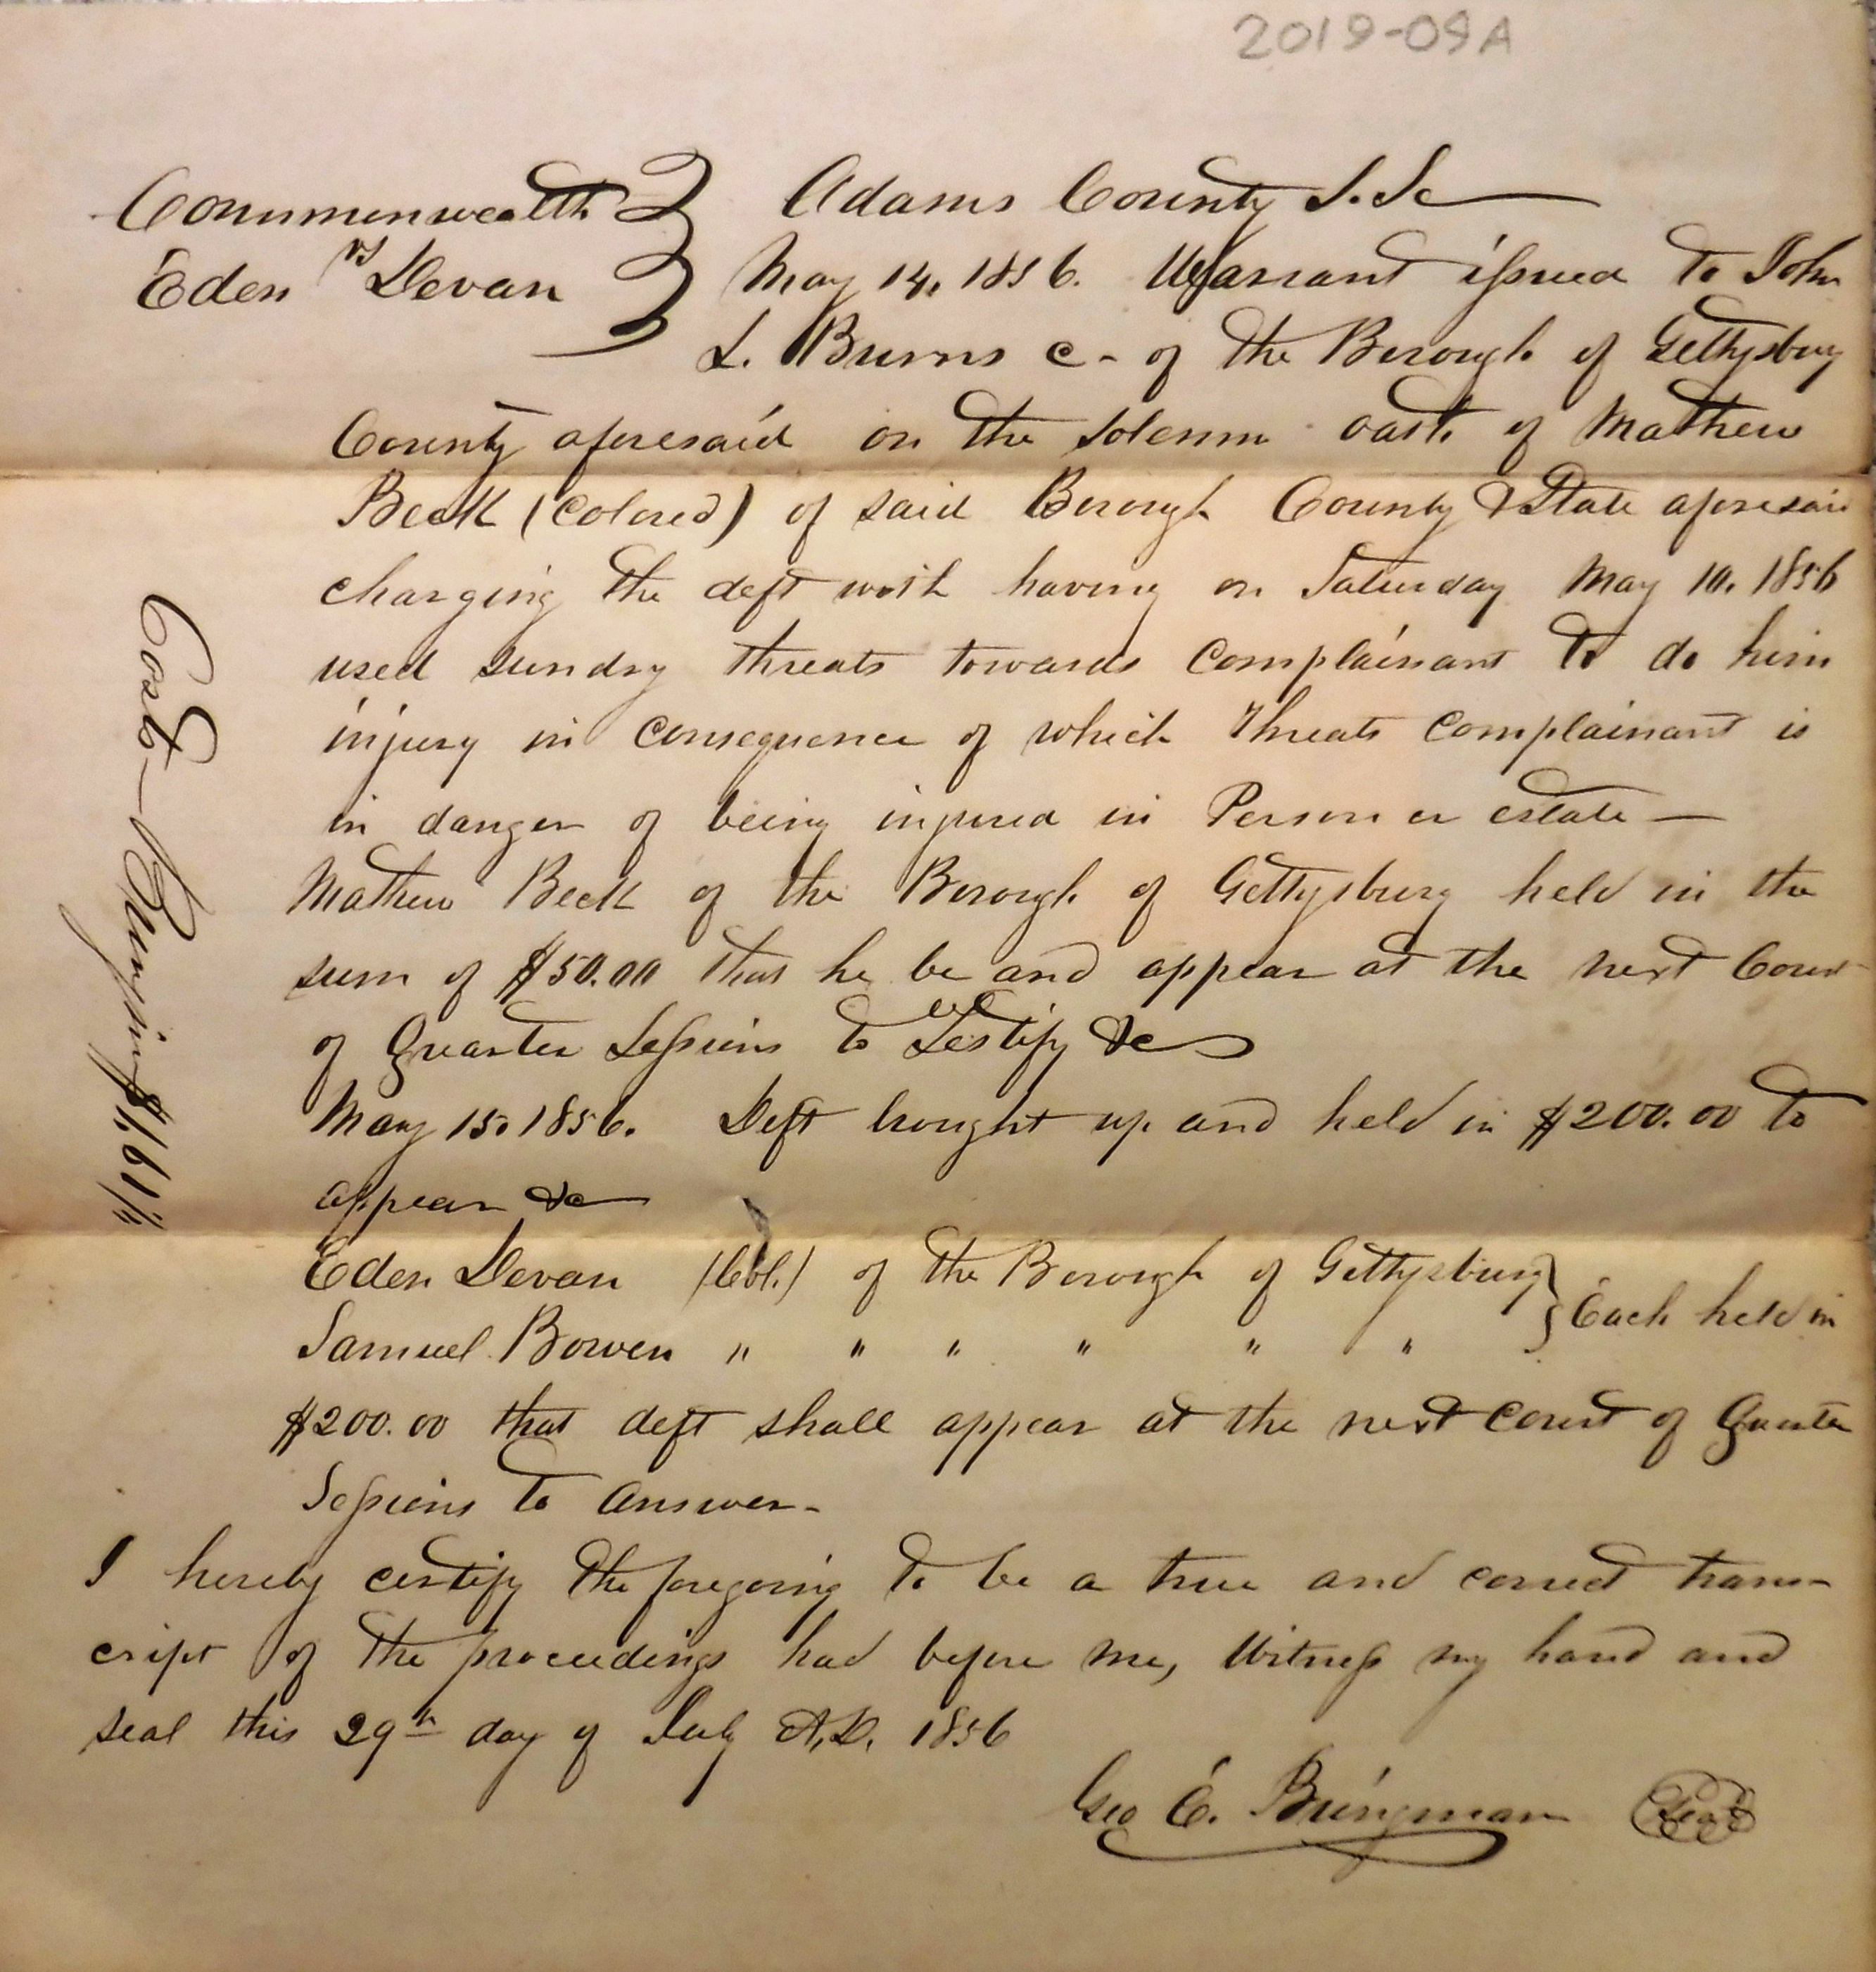 2019-09A
Commonwealth } Adams County S.Sc
vs
Eden Devan } May 14, 1856. Warrant issued to John
L. Burns c- of the Borough of Gettysburg
County aforesaid on the solemn oath of Mathew
Beck (Colored) of said Borough County & State aforesaid
charging the deft with having on Saturday May 10, 1856
used sundry threats towards complainant to do him
injury in consequence of which threats complainant is
in danger of being injured in Person or estate —
Mathew Beck of the Borough of Gettysburg held in the
sum of $50.00 that he be and appear at the next Court
of Quarter Sessions to Testify &c
May 15, 1856. Deft brought up and held in $200.00 to
appear &c
Eden Devan (Col.) of the Borough of Gettysburg } Each held in
Samuel Bowen " " " " " "
$200.00 that deft shall appear at the next court of Quarter
Sessions to answer-
I hereby certify the foregoing to be a true and correct trans-
cript of the proceedings had before me, Witness my hand and
seal this 29th day of July A.D. 1856
Geo E. Bringman Seal
Cost — $1.61½